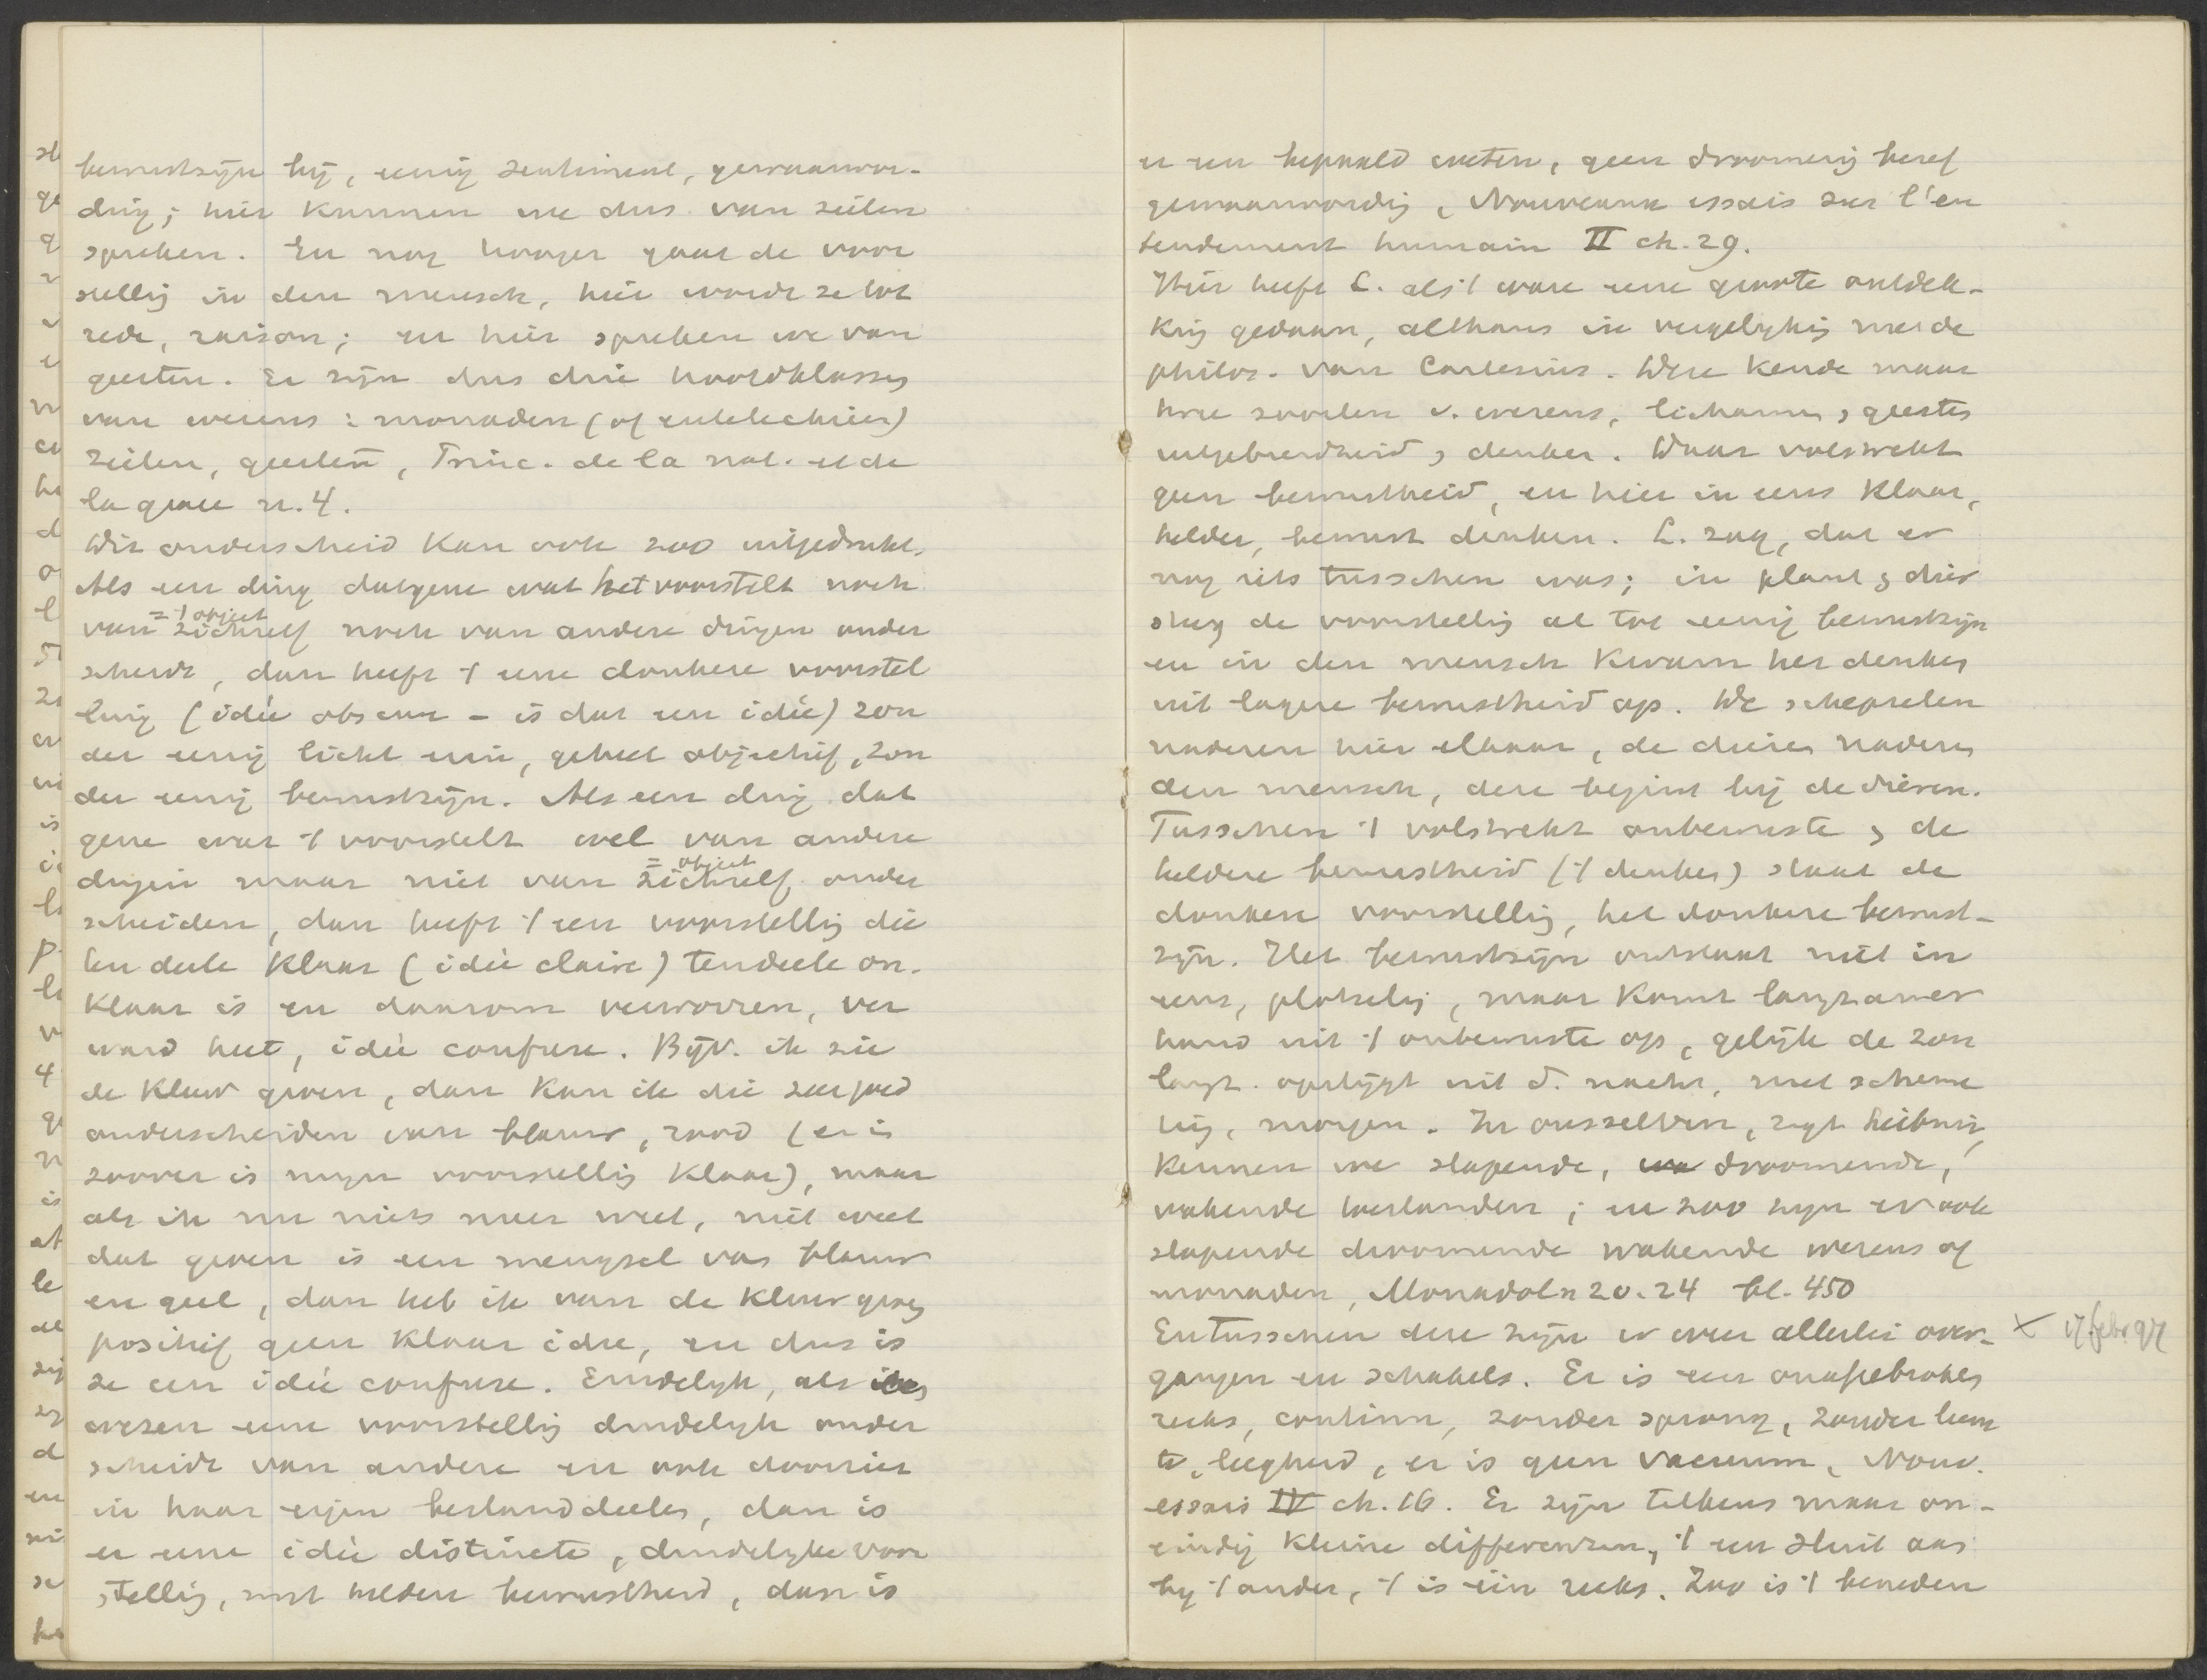 bewustzijn bij, eenig sentiment, gewaarwor-
ding; hier kunnen we dus van zielen
spreken. En nog hooger gaat de voor
stellig in den mensch, hier wordt ze tot
rede, raison; en hier spreken we van
geesten. Er zijn dus drie hoofdklasses
van wezens: monaden (of entelechieën)
zielen, geesten, Princ. de la nat. et de
la grace n. 4.
Dit onderscheid kan ook zoo uitgedrukt.
Als een ding datgene wat het voorstelt noch
= 't object
van zichzelf noch van andere dingen onder
scheidt, dan heeft 't eene donkere voorstel
ling (idée obscure - is dat een idée) zon
der eenig licht erin, geheel objectief, zon
der eenig bewustzijn. Als een ding dat
gene wat 't voorstelt wel van andere
= object
dingen maar niet van zichzelf onder
scheiden, dan heeft 't een voorstellig die
ten deele klaar (idée claire) tendeele on-
klaar is en daarom verworren, ver
ward heet, idée confuse. Bijv. ik zie
de kleur groen, dan kan ik die zeer goed
onderscheiden van blauw, rood (en in
zoover is mijn voorstellig klaar), maar
als ik nu niets meer weet, niet weet
dat groen is een mengsel van blauw
en geel, dan heb ik van de kleur groen
positief geen klaar idee, en dus is
ze een idée confuse. Eindelijk, als een
wezen eene voorstellig duidelijk onder
scheidt van andere en ook doorziet
in haar eigen bestanddeelen, dan is
er eene idée distincte, duidelyke voor
stellig, met heldere bewustheid, dan is
er een bepaald weten, geen droomerig besef
gewaarwordig, Nouveaux essais sur l'en
tendement humain II ch. 29.
Hier heeft L. als 't ware eene groote ontdek-
king gedaan, althans in vergelykig met de
philos. van Cartesius. Deze kende maar
twee soorten v. wezens, lichamen & geesten
uitgebreidheid & denken. Daar volstrekt
geen bewustheid, en hier in eens klaar,
helder, bewust denken. L. zag, dat er
nog iets tusschen was; in plant & dier
steeg de voorstellig al tot eenig bewustzijn
en in den mensch kwam het denken
uit lagere bewustheid op. De schepselen
naderen hier elkaar, de dieren naderen
den mensch, deze begint bij de dieren.
Tusschen 't volstrekt onbewuste & de
heldere bewustheid ('t denken) staat de
donkere voorstellig, het donkere bewust-
zijn. Het bewustzijn ontstaat niet in
eens, plotselig, maar komt langzamer
hand uit 't onbewuste op, gelijk de zon
langz. opstijgt uit d. nacht, met scheme
rig, morgen. In onszelven, zegt Leibniz,
kennen we slapende, droomende,
wakende toestanden; en zoo zijn er ook
slapende droomende wakende wezens of
monaden, Monadol. n 20. 24 bl. 450
En tusschen deze zijn er weer allerlei over- × 17 febr. 97
gangen en schakels. Er is een onafgebroken
reeks, continu, zonder sprong, zonder leem
te, leegheid, er is geen vacuum, Nouv.
essais IV ch. 16. Er zijn telkens maar on-
eindig kleine differenzen, 't een sluit aan
by 't ander, 't is één reeks. Zoo is 't beneden